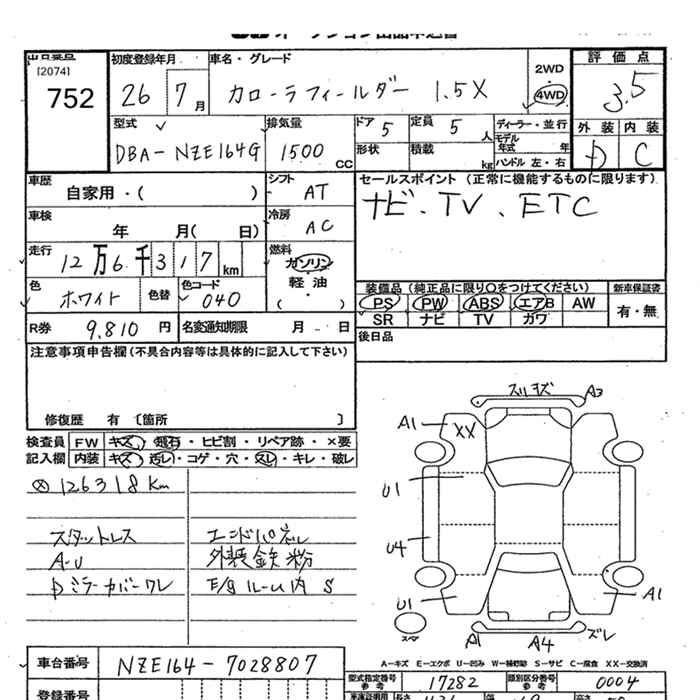 出品番号 初度登録年月 車名・グレード 2WD 評価点
[2074]
752 26 7月 カローラフィールダー 1.5X 4WD 3.5
型式 排気量 ドア 5 定員 5人 ディーラー・並行 外装 内装
モデル年式 年
DBA-NZE164G 1500 CC 形状 積載 kg ハンドル 左・右 D C
車歴 シフト セールスポイント (正常に機能するものに限ります)
自家用・( ) AT ナビ、TV、ETC
車検 冷房
年 月( 日) AC
走行 燃料
12万6千317km ガソリン
軽油
・
( )
色 色替 色コード 装備品 (純正品に限り○をつけてください) 新車保証書
ホワイト 040 PS PW ABS エアB AW 有・無
SR ナビ TV ガワ
R券 9,810円 名変通知期限 月 日 後日品
注意事項申告欄(不具合内容等は具体的に記入して下さい)
修復歴 有 〔箇所 〕
検査員 FW キズ・飛石・ヒビ割・リペア跡・×要
記入欄 内装 キズ・汚レ・コゲ・穴・スレ・キレ・破レ
126318km
スタットレス エンドパネル
A-U 外装鉄粉
Dミラーカバーワレ E/Gルーム内 S
スリキズ A3
A1 XX
U1
U4
U1 A1
スペア
A1 A4 ズレ
A-キズ E-エクボ U-凹み W-補修跡 S-サビ C-腐食 XX-交換済
車台番号 NZE164-7028807
型式指定番号 参考 17282 類別区分番号 参考 0004
登録番号